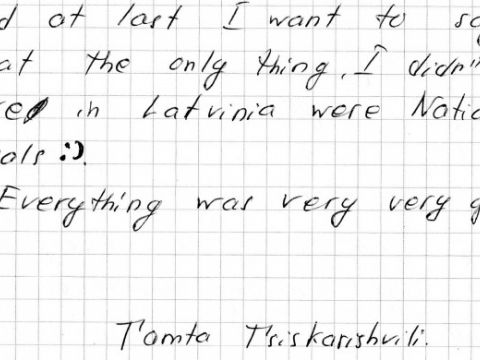 d at last I want to s
at the only thing, I didn'
re in Latvinia were Natio
als :).
Everything was very very g
Tomta Tsiskarishvili.